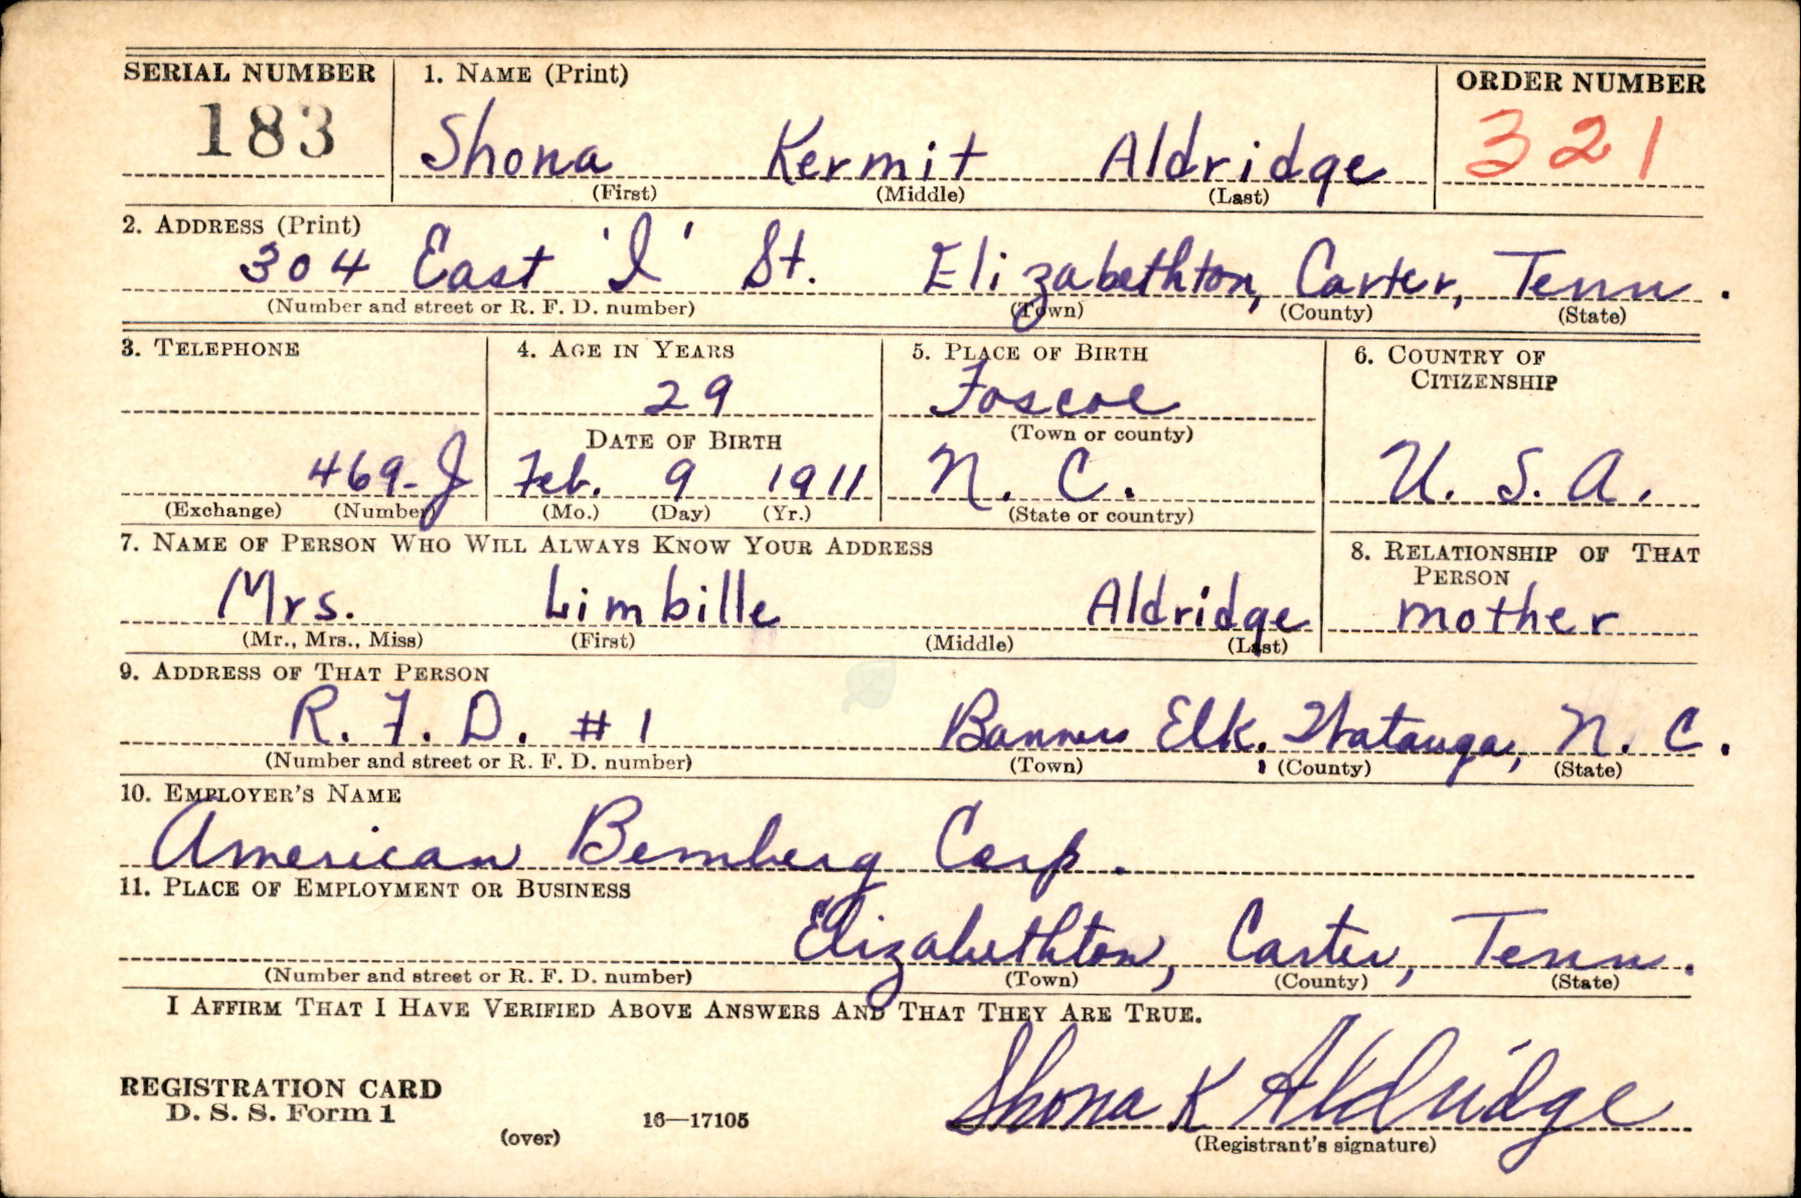 SERIAL NUMBER 1. NAME (Print) ORDER NUMBER
183 Shona Kermit Aldridge 321
(First) (Middle) (Last)
2. ADDRESS (Print)
304 East 'I' St. Elizabethton, Carter, Tenn.
(Number and street or R. F. D. number) (Town) (County) (State)
3. TELEPHONE 4. AGE IN YEARS 5. PLACE OF BIRTH 6. COUNTRY OF
CITIZENSHIP
29 Foscoe
DATE OF BIRTH (Town or county)
469-J Feb. 9 1911 N. C. U. S. A.
(Exchange) (Number) (Mo.) (Day) (Yr.) (State or country)
7. NAME OF PERSON WHO WILL ALWAYS KNOW YOUR ADDRESS 8. RELATIONSHIP OF THAT
PERSON
Mrs. Limbille Aldridge mother
(Mr., Mrs., Miss) (First) (Middle) (Last)
9. ADDRESS OF THAT PERSON
R. F. D. #1 Banners Elk, Watauga, N. C.
(Number and street or R. F. D. number) (Town) (County) (State)
10. EMPLOYER'S NAME
American Bemberg Corp.
11. PLACE OF EMPLOYMENT OR BUSINESS
Elizabethton, Carter, Tenn.
(Number and street or R. F. D. number) (Town) (County) (State)
I AFFIRM THAT I HAVE VERIFIED ABOVE ANSWERS AND THAT THEY ARE TRUE.
REGISTRATION CARD Shona K Aldridge
D. S. S. Form 1 16—17105
(over) (Registrant's signature)